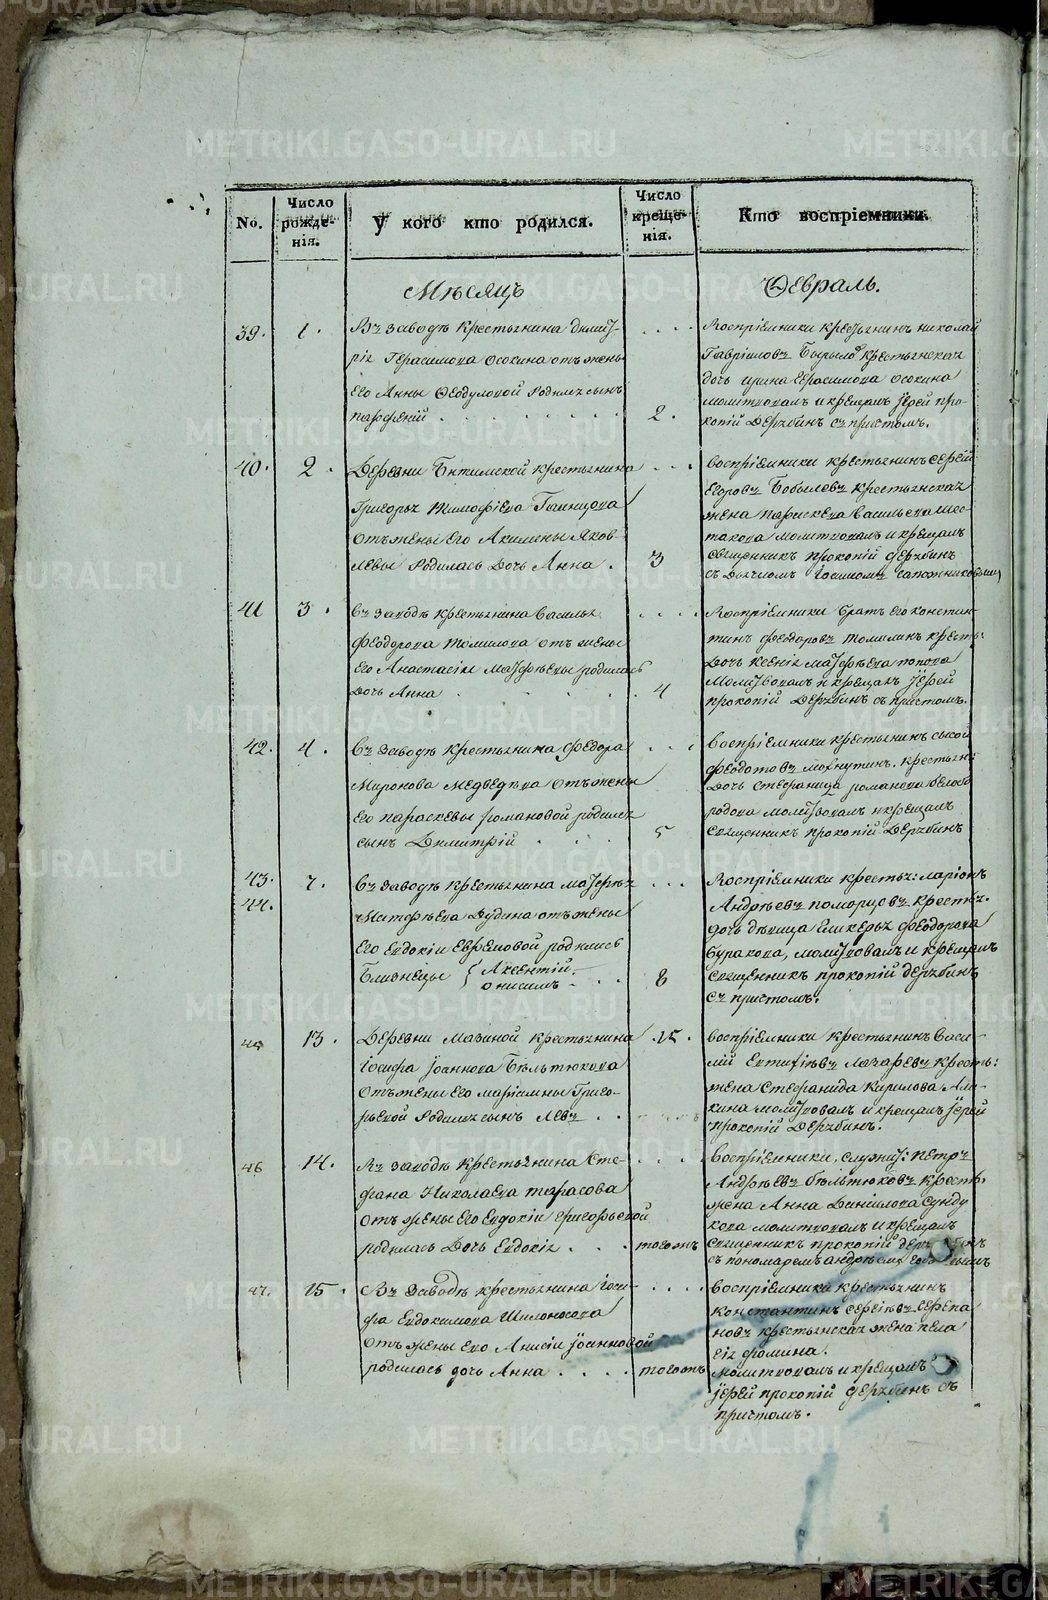 No.
Число рожде-нія.
У кого кто родился.
Число креще-нія.
Кто воспріемники.
Мѣсяцъ
Ѳевраль.
39. 1.
Въ заводѣ крестьянина Димит-
рія Герасимова Осокина отъ жены
его Анны Ѳеодуловой родился сынъ
Парфеній
2.
Воспріемники крестьянинъ Николай
Гавріиловъ крестьянская
дочь Ирина Герасимова Осокина
молитвовалъ и крещалъ іерей Про-
копій Дерябинъ съ причтомъ.
40. 2.
Деревни крестьянина
Григорья Тимофіева
отъ жены его Акилины Яков-
левы родилась дочь Анна.
3
воспріемники крестьянинъ Сергій
Егоровъ Бобылевъ крестьянская
жена Параскева Васильева Шес-
такова молитвовалъ и крещалъ
священникъ Прокопій Дерябинъ
съ дьячкомъ Іоанномъ Сапожниковымъ
41 3.
въ заводѣ крестьянина Василья
Феодорова Томилова отъ жены
его Анастасіи Матфѣевы родилась
дочь Анна
4
Воспріемники братъ его Констан-
тинъ Феодоровъ Томилинъ крестья:
дочь Ксенія Матфѣева Попова
молитвовалъ и крещалъ іерей
Прокопій Дерябинъ съ причтомъ.
42. 4.
въ заводѣ крестьянина Феодора
Миронова Медведѣва отъ жены
его Параскевы Романовой родился
сынъ Димитрій
5
воспріемники крестьянинъ Сысой
Феодотовъ крестьян:
дочь Стефанида Романова Белобо
родова молитвовалъ и крещалъ
священникъ Прокопій Дерябинъ
43. 7.
44.
въ заводѣ крестьянина Матфѣя
Матфѣева Дудина отъ жены
его Евдокіи Ефремовой родились
близнецы { Аксентій.
Онисимъ
8
Воспріемники крестья: Ларіонъ
Андрѣевъ Поморцовъ крестья.
дочь дѣвица Гликерья Феодорова
Буракова, молитвовалъ и крещалъ
священникъ Прокопій Дерябинъ
съ причтомъ.
45 13.
Деревни Мазиной крестьянина
Іосифа Іоаннова Бѣльтюкова
отъ жены его Маріамны Григо-
рьевой родился сынъ Левъ
15.
воспріемники крестьянинъ Васи-
лій Евтихѣевъ Лазаревъ кресть:
жена Стефанида Кирилова Али-
кина молитвовалъ и крещалъ іерей
Прокопій Дерябинъ.
46 14.
Въ заводѣ крестьянина Сте-
фана Николаева Тарасова
отъ жены его Евдокіи Григорьевой
родилась дочь Евдокія
тогожъ
Воспріемники, служит: Петръ
Андрѣевъ Бѣльтюковъ кресть.
жена Анна Данилова Сунду
кова молитвовалъ и крещалъ
священникъ Прокопій
съ пономаремъ Андрѣемъ
47. 15.
Въ заводѣ крестьянина Іоси-
фа Евдокимова Шилоносова
отъ жены его Анисіи Іоанновой
родилась дочь Анна
тогожъ
воспріемники крестьянинъ
Константинъ Сергѣевъ Черепа
новъ крестьянская жена Пела
гія Фомина.
молитвовалъ и крещалъ
іерей Прокопій Дерябинъ съ
причтомъ.
METRIKI.GASO-URAL.RU